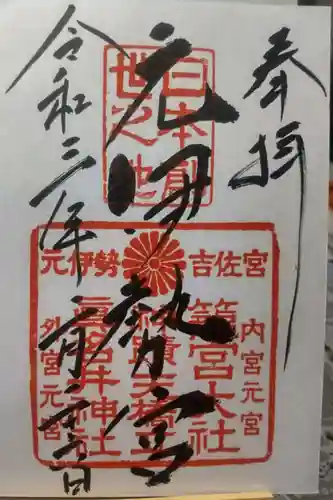 奉拝
日本創
世之地
元伊勢宮
元伊勢 吉佐宮
内宮元宮
籠宮大社
眞名井神社
外宮元宮
令和三年